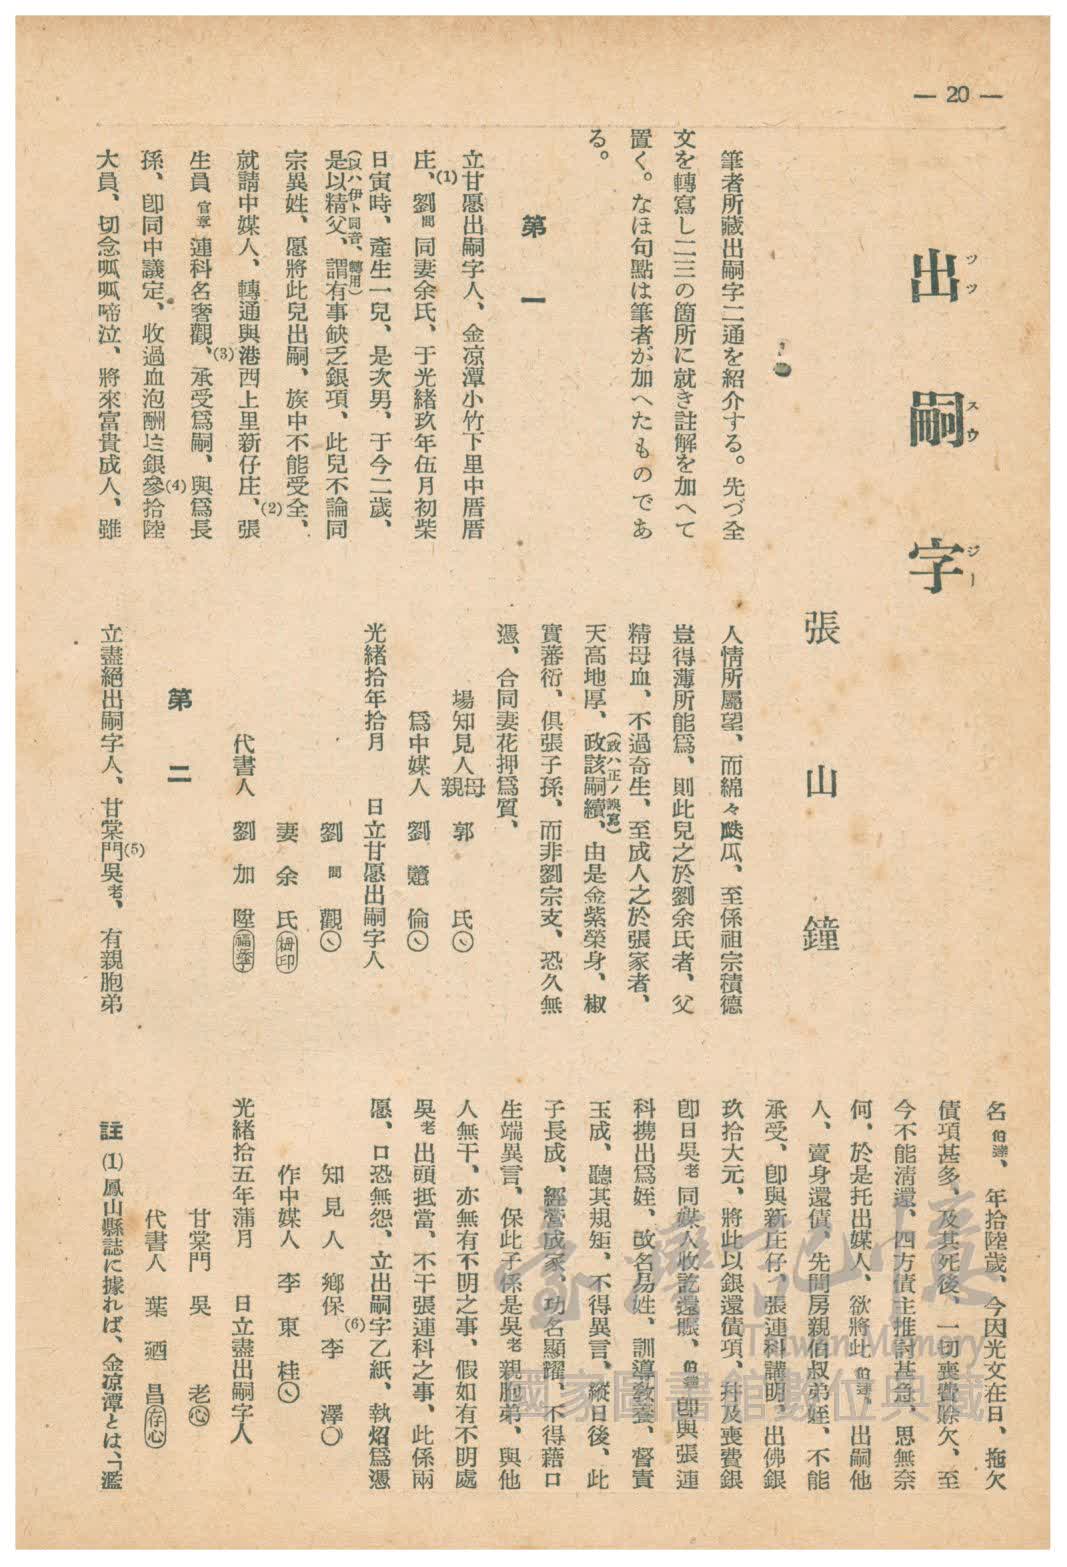 — 20 —
出嗣字
ツツ スウ ジー
張山鐘
筆者所藏出嗣字二通を紹介する。先づ全
文を轉寫し二三の箇所に就き註解を加へて
置く。なほ句點は筆者が加へたものであ
る。
第一
立甘愿出嗣字人、金凉潭小竹下里中厝厝
庄、(1)劉間同妻余氏、于光緒玖年伍月初柒
日寅時、產生一兒、是次男、于今二歲、
(以ハ伊ト同音、轉用)
是以精父、謂有事缺乏銀項、此兒不論同
宗異姓、愿將此兒出嗣、族中不能受全、(2)
就請中媒人、轉通與港西上里新仔庄、張
生員官章連科名奢觀、(3)承受爲嗣、與爲長
孫、卽同中議定、收過血泡酬銀(4)參拾陸
大員、切念呱呱啼泣、將來富貴成人、雖
人情所屬望、而綿々瓞瓜、至係祖宗積德
豈得薄所能爲、則此兒之於劉余氏者、父
精母血、不過奇生、至成人之於張家者、
天高地厚、政該嗣續、由是金紫榮身、椒
(政ハ正ノ誤寫)
實蕃衍、俱張子孫、而非劉宗支、恐久無
憑、合同妻花押爲質、
場知見人母親 郭 氏
爲中媒人 劉 倫
光緒拾年拾月 日立甘愿出嗣字人
劉 間 觀
妻 余 氏 拇印
代書人 劉 加 陞
第二
立盡絕出嗣字人、甘棠門(5)吳老、有親胞弟
名伯達、年拾陸歲、今因光文在日、拖欠
債項甚多、及其死後、一切喪費賒欠、至
今不能淸還、四方債主推討甚急、思無奈
何、於是托出媒人、欲將此伯達、出嗣他
人、賣身還債、先問房親伯叔弟姪、不能
承受、卽與新庄仔、張連科講明、出佛銀
玖拾大元、將此以銀還債項、幷及喪費銀
卽日吳老同媒人收訖還賬、伯達卽與張連
科携出爲姪、改名易姓、訓導敎養、督責
玉成、聽其規矩、不得異言、縱日後、此
子長成、經營成家、功名顯耀、不得藉口
生端異言、保此子係是吳老親胞弟、與他
人無干、亦無有不明之事、假如有不明處
吳老出頭抵當、不干張連科之事、此係兩
愿、口恐無怨、立出嗣字乙紙、執炤爲憑
知見人 鄉保(6)李 澤〇
作中媒人 李 東 桂
光緒拾五年蒲月 日立盡出嗣字人
甘棠門 吳 老 心
代書人 葉 迺 昌 存心
註 (1)鳳山縣誌に據れば、金凉潭とは、「濫
臺灣記憶
Taiwan Memory
國家圖書館數位典藏